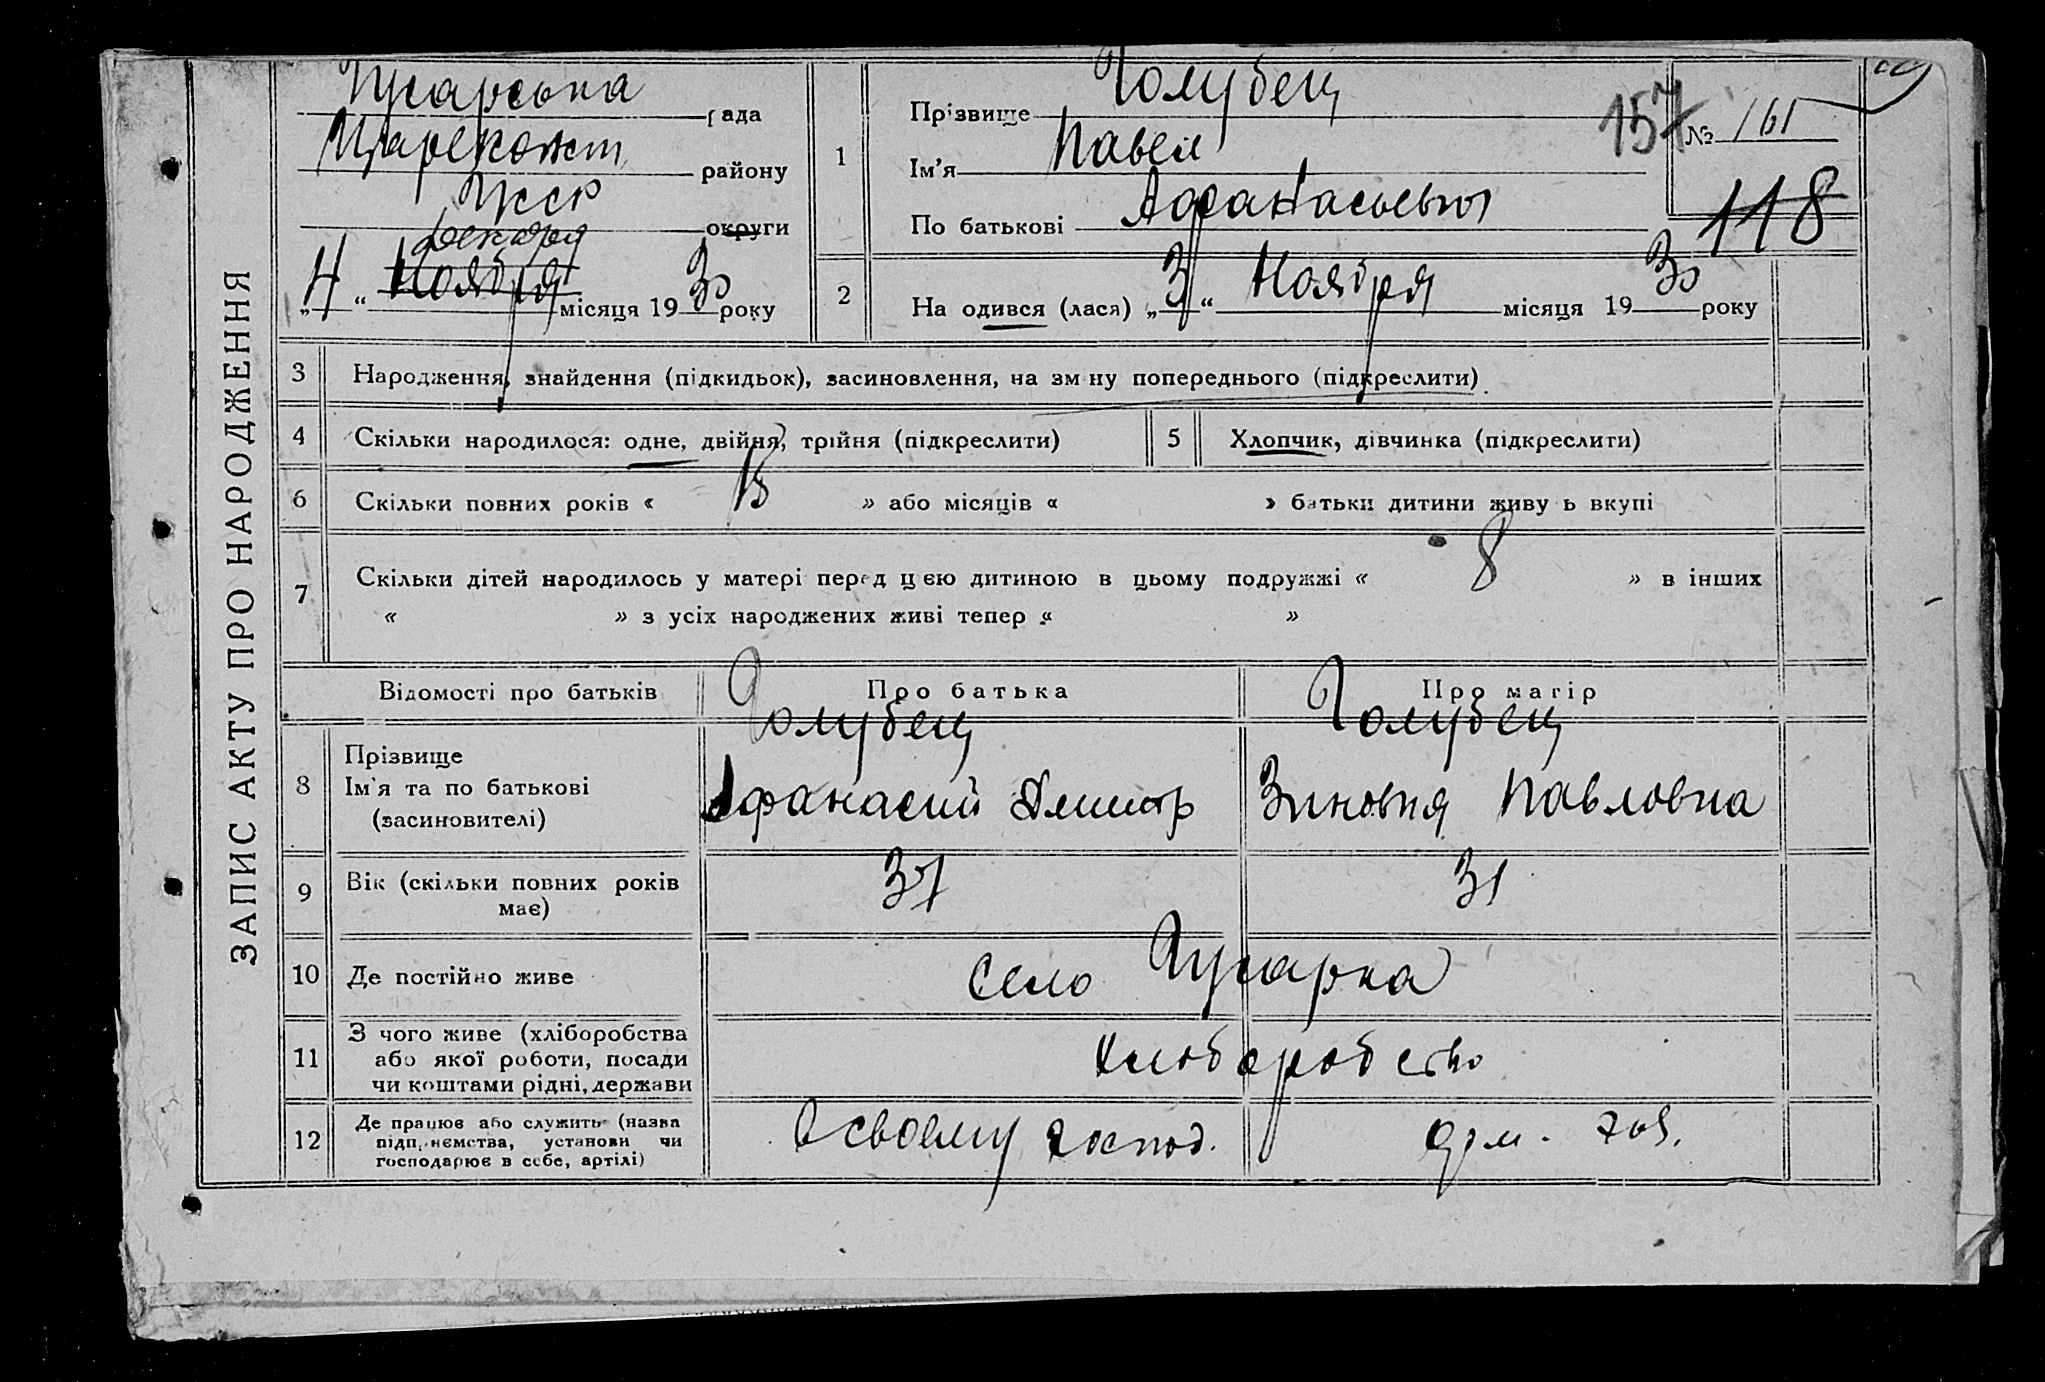 ЗАПИС АКТУ ПРО НАРОДЖЕННЯ
Гусарська рада
Цареконст району
УССР округи
Декабря
„4“ Ноября місяця 1930 року
1
Прізвище Голубец
Ім'я Павел
По батькові Афанасьевич
157
№ 161
118
2
На одився (лася) „3“ Ноября місяця 1930 року
3 Народження, знайдення (підкидьок), засиновлення, на зм ну попереднього (підкреслити)
4 Скільки народилося: одне, двійня, трійня (підкреслити)
5 Хлопчик, дівчинка (підкреслити)
6 Скільки повних років « 13 » або місяців « » батьки дитини живу ь вкупі
7 Скільки дітей народилось у матері перед цією дитиною в цьому подружжі « 8 » в інших
« » з усіх народжених живі тепер « »
Відомості про батьків
Про батька
Про матір
8 Прізвище
Ім'я та по батькові
(засиновителі)
Голубец
Афанасий Дмитр
Голубец
Зиновия Павловна
9 Вік (скільки повних років
має)
37
31
10 Де постійно живе
село Гусарка
11 З чого живе (хліборобства
або якої роботи, посади
чи коштами рідні, держави
Хлюборобство
12 Де працює або служить (назва
підприємства, установи чи
господарює в себе, артілі)
В своему господ.
дом. хоз.